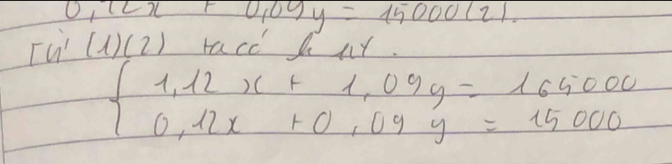 0,12x + 0,09y = 15000(2).
Từ (1)(2) ta có hpt.
1,12x + 1,09y = 165000
0,12x + 0,09y = 15000